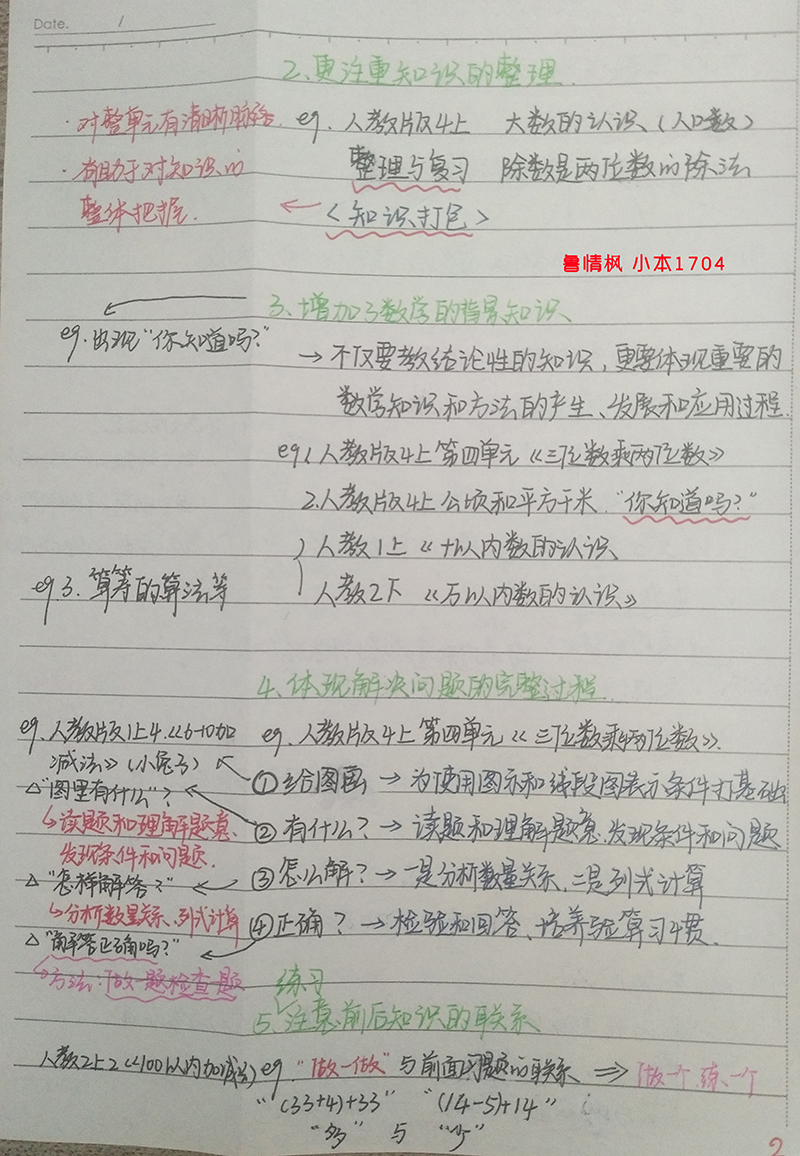 Date. /
2.更注重知识的整理
·对整单元有清晰脉络.
eg. 人教版4上 大数的认识、(人口数)
·有助于对知识的
整理与复习 除数是两位数的除法
整体把握.
<知识打包>
鲁情枫 小本1704
3.增加了数学的背景知识、
eg.出现“你知道吗?”
→不仅要教结论性的知识,更要体现重要的
数学知识和方法的产生、发展和应用过程.
eg1.人教版4上第四单元《三位数乘两位数》
2.人教版4上公顷和平方千米.“你知道吗?”
人教1上《十以内数的认识、
eg.3.算筹的算法等
人教2下《万以内数的认识》
4.体现解决问题的完整过程.
eg.人教版1上4.《6-10加
eg.人教版4上第四单元《三位数乘两位数》.
减法》(小兔子)
①给图画→为使用图示和线段图表示条件打基础
△“图里有什么”?
②有什么?→读题和理解题意、发现条件和问题
↳读题和理解题意、
发现条件和问题.
③怎么解?→一是分析数量关系,二是列式计算
△“怎样解答?”
↳分析数量关系、列式计算
④正确?→检验和回答、培养验算习惯.
△“解答正确吗?”
↳方法:做题检查题
练习
5.注意前后知识的联系
人教2上2《100以内加减法》eg.“做一做”与前面问题的联系 ⇒做一个.练一个
“(33+4)+33” “(14-5)+14”
“多” 与 “少”
2